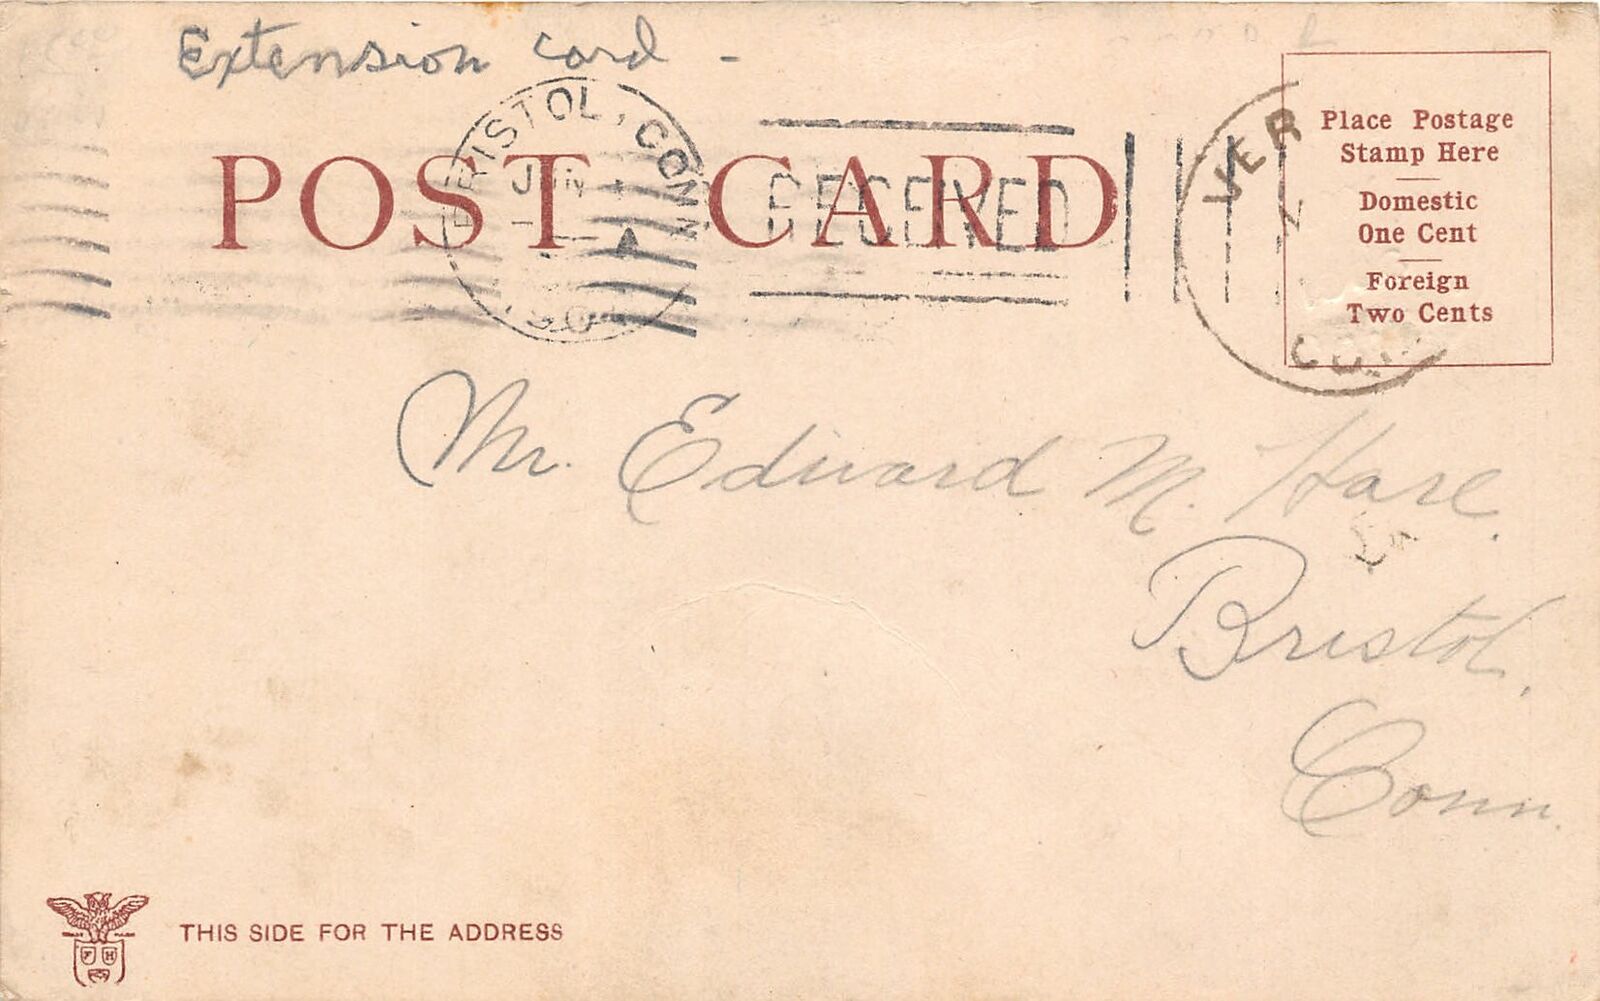 Extension card -
POST CARD
BRISTOL, CONN
JUN
RECEIVED
VER
Place Postage
Stamp Here
Domestic
One Cent
Foreign
Two Cents
Mr. Edward M. Hare.
Bristol,
Conn.
F H
THIS SIDE FOR THE ADDRESS